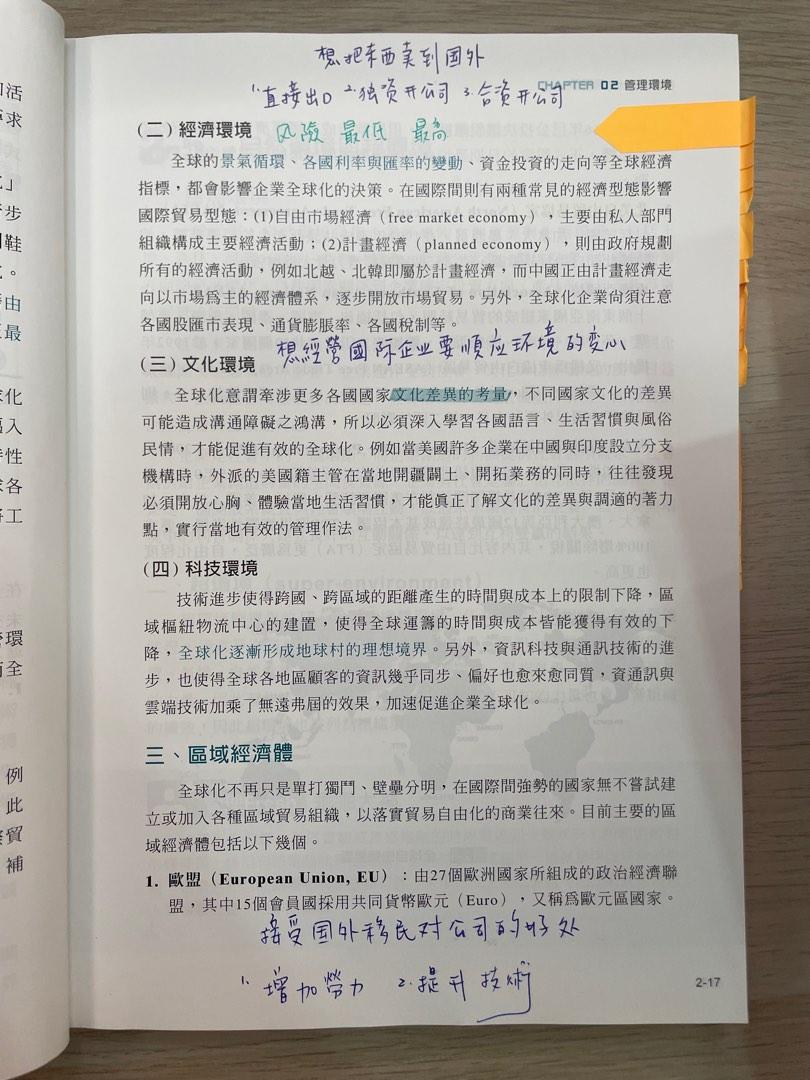 想把东西卖到国外
CHAPTER 02 管理環境
1.直接出口 2.独资开公司 3.合资开公司
(二) 經濟環境 风險 最低 最高
全球的景氣循環、各國利率與匯率的變動、資金投資的走向等全球經濟
指標，都會影響企業全球化的決策。在國際間則有兩種常見的經濟型態影響
國際貿易型態：(1)自由市場經濟（free market economy），主要由私人部門
組織構成主要經濟活動；(2)計畫經濟（planned economy），則由政府規劃
所有的經濟活動，例如北越、北韓即屬於計畫經濟，而中國正由計畫經濟走
向以市場爲主的經濟體系，逐步開放市場貿易。另外，全球化企業尙須注意
各國股匯市表現、通貨膨脹率、各國稅制等。
想經營國际企业要順应环境的变化
(三) 文化環境
全球化意謂牽涉更多各國國家文化差異的考量，不同國家文化的差異
可能造成溝通障礙之鴻溝，所以必須深入學習各國語言、生活習慣與風俗
民情，才能促進有效的全球化。例如當美國許多企業在中國與印度設立分支
機構時，外派的美國籍主管在當地開疆闢土、開拓業務的同時，往往發現
必須開放心胸、體驗當地生活習慣，才能眞正了解文化的差異與調適的著力
點，實行當地有效的管理作法。
(四) 科技環境
技術進步使得跨國、跨區域的距離產生的時間與成本上的限制下降，區
域樞紐物流中心的建置，使得全球運籌的時間與成本皆能獲得有效的下
降，全球化逐漸形成地球村的理想境界。另外，資訊科技與通訊技術的進
步，也使得全球各地區顧客的資訊幾乎同步、偏好也愈來愈同質，資通訊與
雲端技術加乘了無遠弗屆的效果，加速促進企業全球化。
三、區域經濟體
全球化不再只是單打獨鬥、壁壘分明，在國際間強勢的國家無不嘗試建
立或加入各種區域貿易組織，以落實貿易自由化的商業往來。目前主要的區
域經濟體包括以下幾個。
1. 歐盟（European Union, EU）：由27個歐洲國家所組成的政治經濟聯
盟，其中15個會員國採用共同貨幣歐元（Euro），又稱爲歐元區國家。
接受国外移民对公司的好处
1. 增加勞力 2. 提升技術
2-17